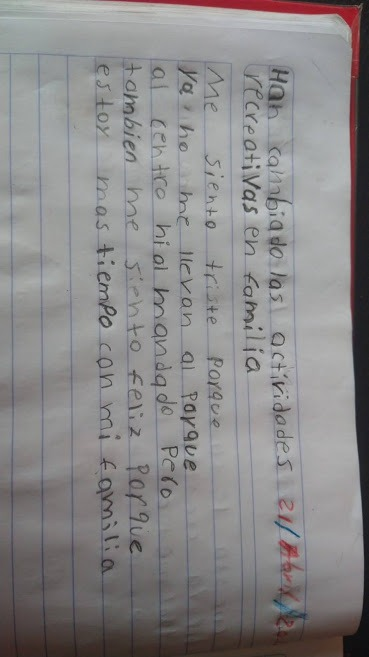 Han cambiado las actividades 21/Abril/20
recreativas en familia
Me siento triste porque
ya no me llevan al parque
al sentro hial mandado pero
tambien me siento feliz porque
estoy mas tiempo con mi familia